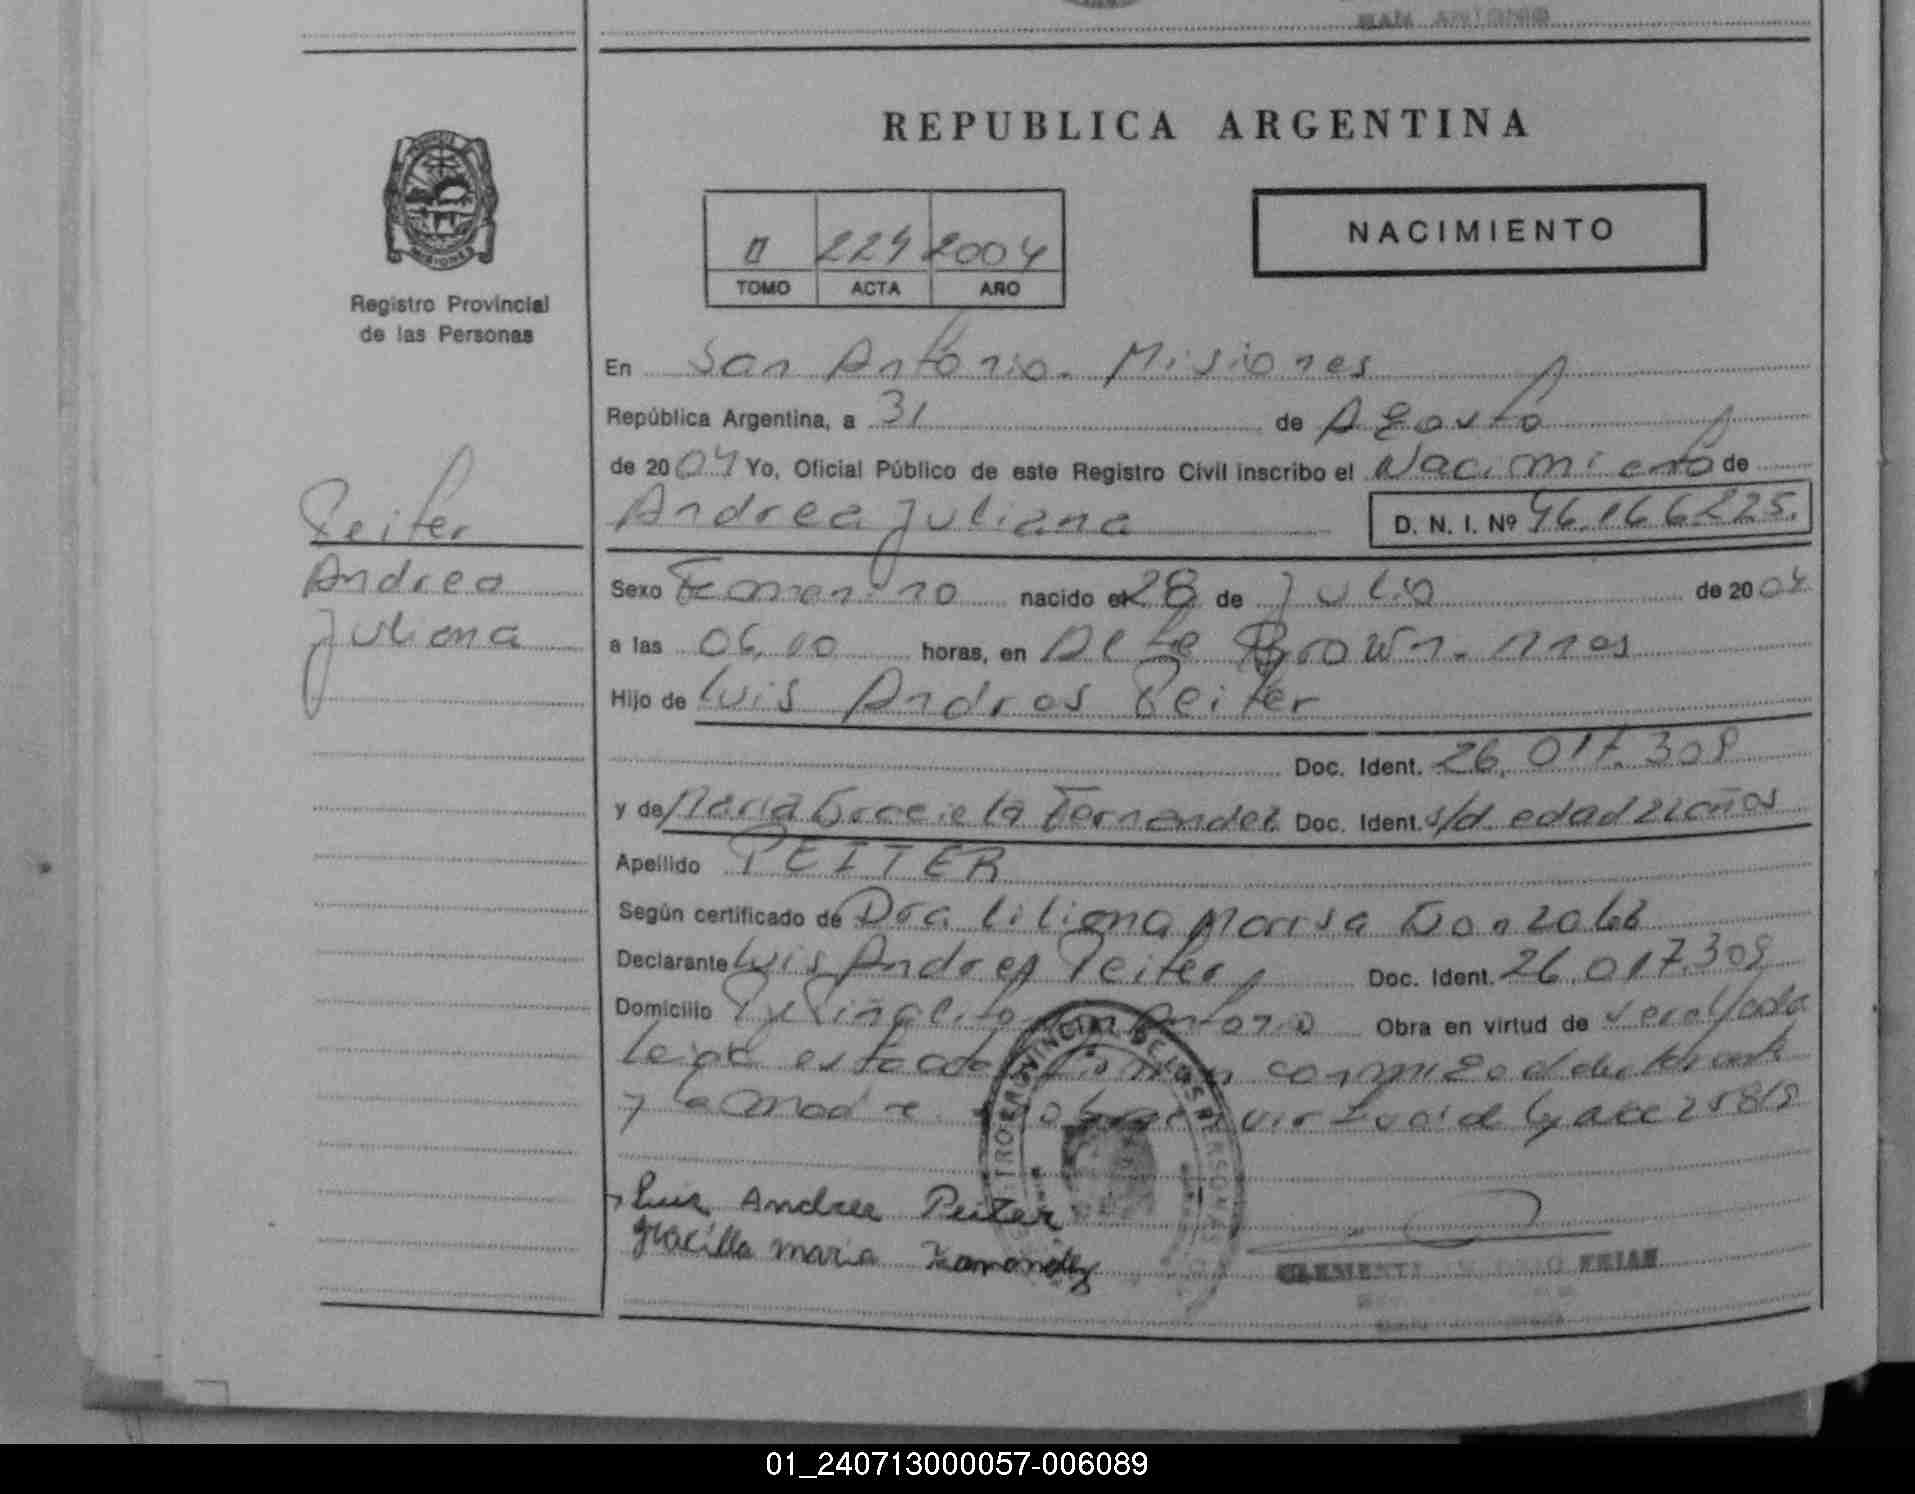 SAN ANTONIO
REPUBLICA ARGENTINA
MISIONES
Registro Provincial
de las Personas
II 224 2004
TOMO ACTA AÑO
NACIMIENTO
En San Antonio. Misiones
República Argentina, a 31 de Agosto
de 2004 Yo, Oficial Público de este Registro Civil inscribo el Nacimiento de
Andrea Juliana D. N. I. Nº 46.166.225.
Peiter
Andrea
Juliana
Sexo Femenino nacido el 28 de Julio de 2004
a las 06,10 horas, en Alte Brown. Mnes
Hijo de Luis Andres Peiter
Doc. Ident. 26.017.309
y de Maria Graciela Fernandez Doc. Ident. s/d edad 21 años
Apellido PEITER
Según certificado de Dra Liliana Marisa Gonzalez
Declarante Luis Andres Peiter Doc. Ident. 26.017.309
Domicilio Piñalito San Antonio Obra en virtud de
y la madre virtud de Ley 25819
Luis Andres Peiter
Gracilla maria Fernandez
CLEMENTE FRIAS
01_240713000057-006089